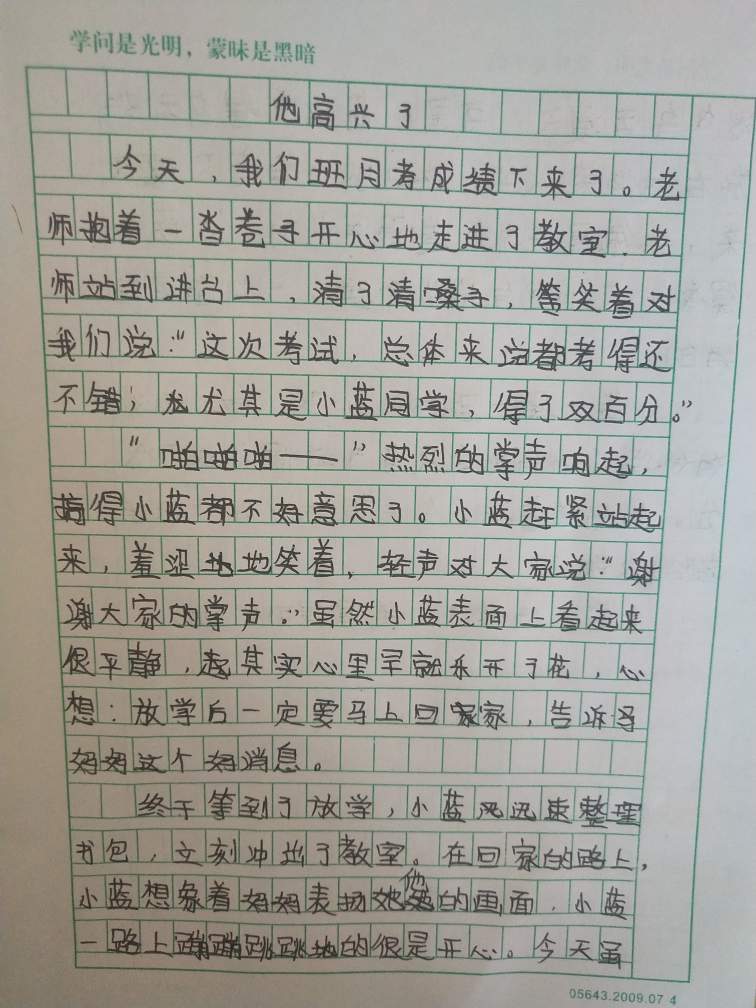 学问是光明，蒙昧是黑暗
他高兴了
今天，我们班月考成绩下来了。老
师抱着一沓卷子开心地走进了教室．老
师站到讲台上，清了清嗓子，笑着对
我们说：“这次考试，总体来说都考得还
不错；尤其是小蓝同学，得了双百分。”
“啪啪啪——”热烈的掌声响起，
搞得小蓝都不好意思了。小蓝赶紧站起
来，羞涩地笑着，轻声对大家说：“谢
谢大家的掌声。”虽然小蓝表面上看起来
很平静，起其实心里早就乐开了花，心
想：放学后一定要马上回家，告诉
妈妈这个好消息。
终于等到了放学，小蓝风迅速整理
书包，立刻冲出了教室。在回家的路上，
小蓝想象着妈妈表扬他的画面．小蓝
一路上蹦蹦跳跳地的很是开心。今天虽
05643.2009.07 4